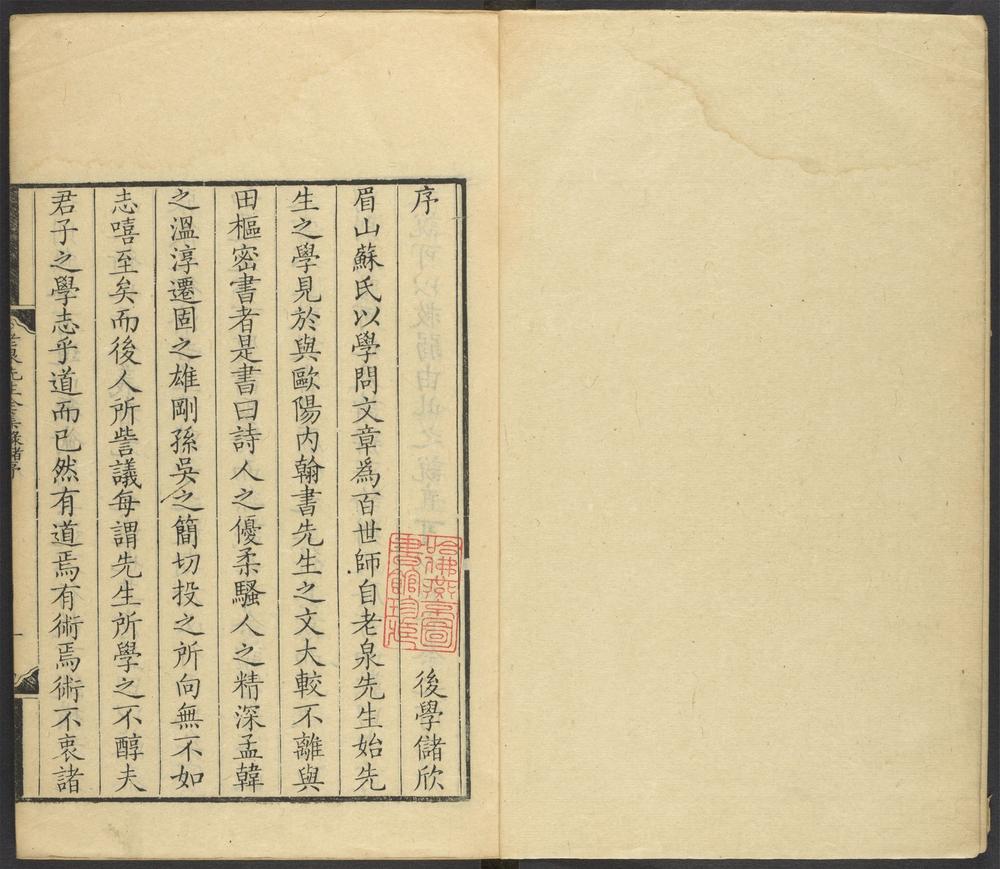 序
後學儲欣
眉山蘇氏以學問文章為百世師自老泉先生始先
生之學見於與歐陽內翰書先生之文大較不離與
田樞密書者是書曰詩人之優柔騷人之精深孟韓
之溫淳遷固之雄剛孫吳之簡切投之所向無不如
志嘻至矣而後人所訾議每謂先生所學之不醇夫
君子之學志乎道而已然有道焉有術焉術不衷諸
哈佛燕京圖
書館珍藏